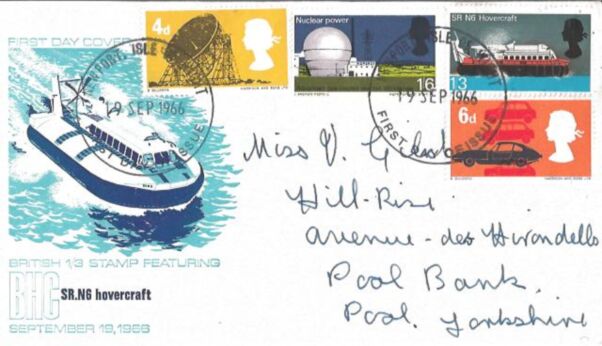 FIRST DAY COVER
4d
Nuclear power
1/6
SR N6 Hovercraft
1/3
6d
HARRISON AND SONS LTD
19 SEP 1966
19 SEP 1966
FIRST DAY OF ISSUE
Miss V.
Hill-Rise
Avenue-des Hirondelles
Pool Bank.
Pool. Yorkshire
BRITISH 1/3 STAMP FEATURING
BHC SR.N6 hovercraft
SEPTEMBER 19,1966